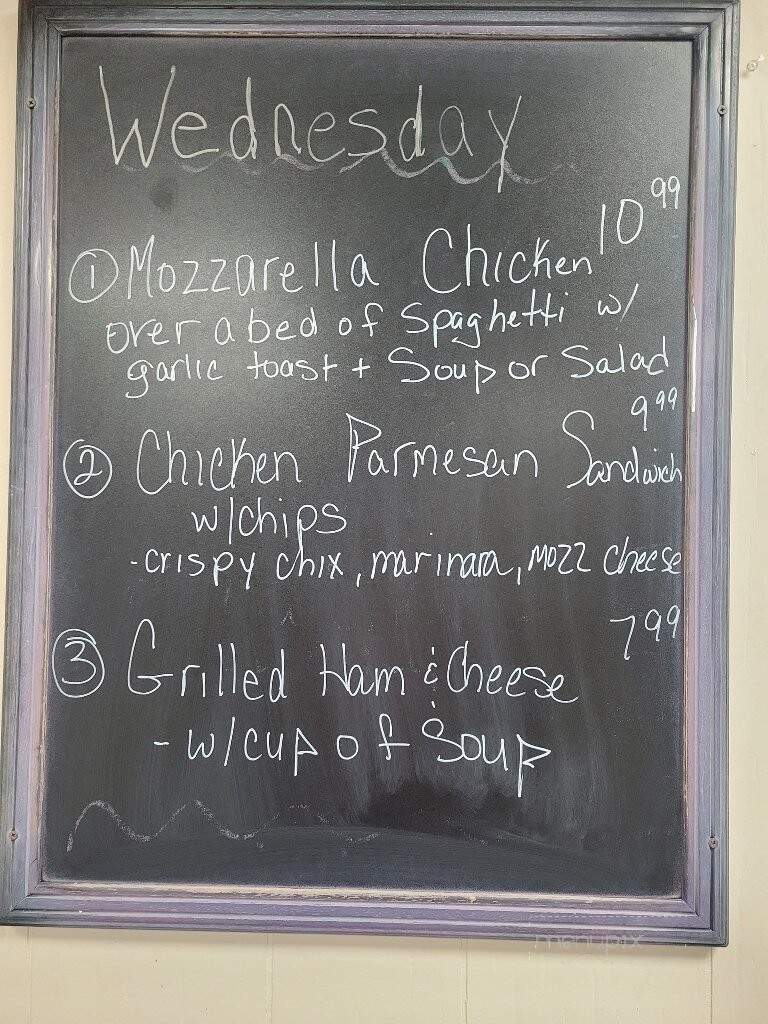 Wednesday
10 99
① Mozzarella Chicken
over a bed of Spaghetti w/
garlic toast + Soup or Salad
9 99
② Chicken Parmesan Sandwich
w/chips
- crispy chix, marinara, mozz cheese
7 99
③ Grilled Ham & Cheese
- w/cup of Soup
menupix